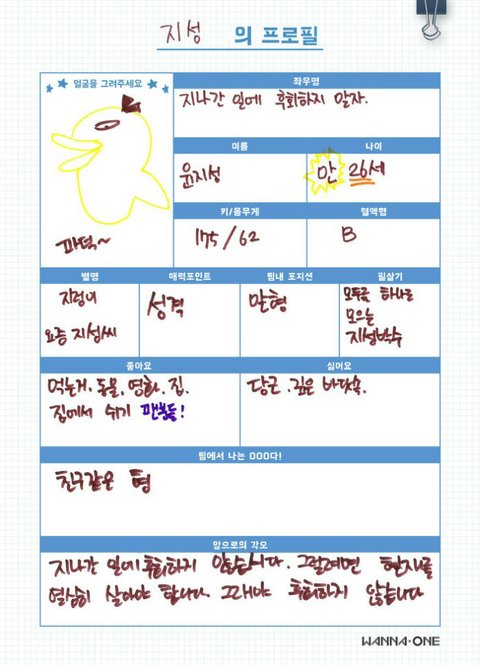 지성 의 프로필
얼굴을 그려주세요
파덕~
좌우명
지나간 일에 후회하지 말자.
이름
윤지성
나이
만 26세
키/몸무게
175/62
혈액형
B
별명
지성이
요즘 지성씨
매력포인트
성격
팀내 포지션
맏형
필살기
모두를 하나로
모으는
지성박수
좋아요
먹는거, 동물, 영화, 집,
집에서 쉬기 팬분들!
싫어요
당근, 깊은 바닷속.
팀에서 나는 OOO다!
친구같은 형
앞으로의 각오
지나간 일에 후회하지 않습니다. 그럴려면 현재를
열심히 살아야 합니다. 그래야 후회하지 않습니다
WANNA·ONE